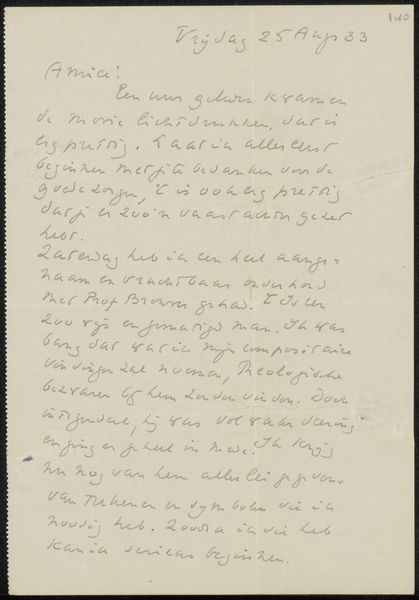 140
Vrijdag 25 Aug 33
Amice!
Een uur geleden kwamen
de mooie lichtdrukken, dat is
erg prettig. Laat ik allereerst
beginnen met je te bedanken voor de
goede zorgen, 't is ook erg prettig
dat je er zoo'n vaart achter gezet
hebt.
Zaterdag heb ik een heel aange=
naam en vruchtbaar onderhoud
met Prof Brouwer gehad. 't Is een
zoo wijs en gematigd man. Ik was
bang dat wat ik mijn compositaire
vindingen zal noemen, Theologische
bezwaren bij hem zouden vinden. Doch
integendeel, hij was vol waardeering
en ging er geheel in mede. Ik krijg
nu nog van hem allerlei gegevens
van teekenen en symbolen die ik
noodig heb. Zoodra ik die heb
kan ik serieus beginnen.